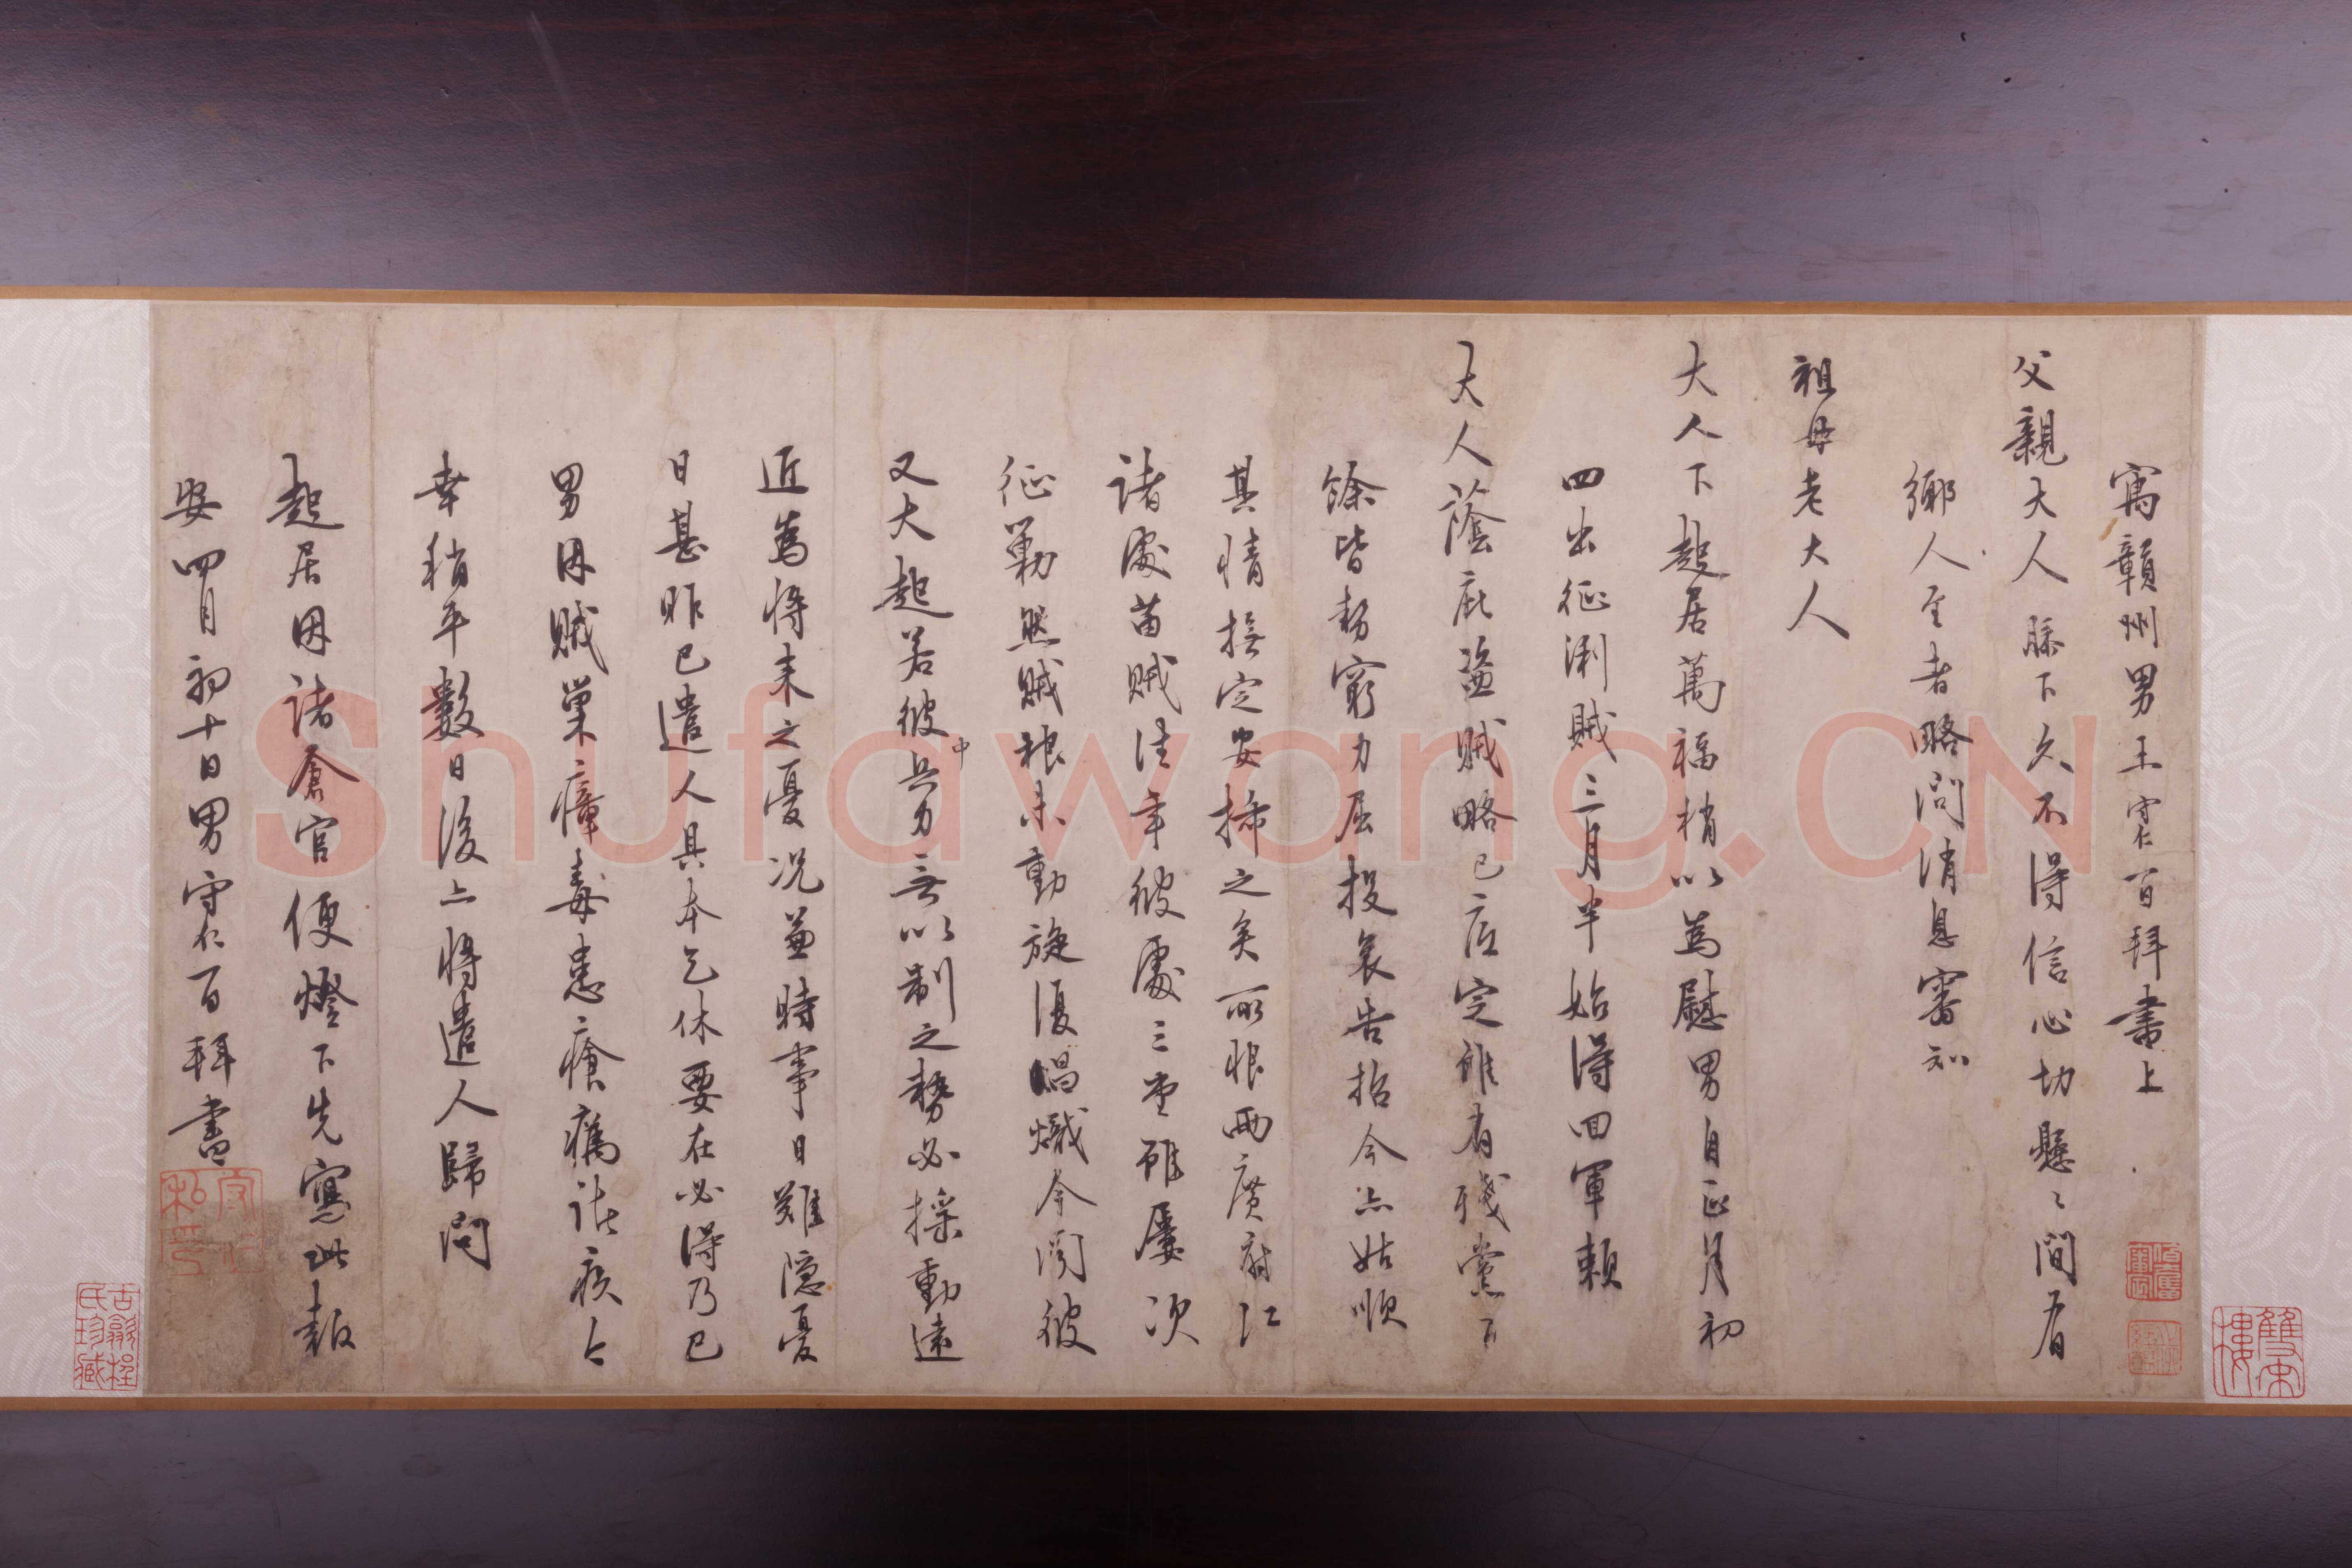 寓贛州男王守仁百拜書上
父親大人膝下久不得信心切懸〻間有
鄉人至者略問消息審知
祖母老大人
大人下起居萬福稍以為慰男自正月初
四出征浰賊三月半始得回軍賴
大人蔭庇盜賊略已底定雖有殘黨
餘皆勢窮力屈投哀告招今亦姑順
其情撫定安插之矣所恨兩廣府江
諸處苗賊往年彼處三堂雖屢次
征勦然賊根未動旋復昌熾今聞彼
又大起若彼中兵力無以制之勢必搖動遠
近為將來之憂況兼時事日難隱憂
日甚昨已遣人具本乞休要在必得乃已
男因賊巢瘴毒患瘡癘諸疾今
幸稍平數日後亦將遣人歸問
起居因諸倉官便燈下先寫此報
安四月初十日男守仁百拜書
古歙程氏珍藏
雙宋樓
Shufawang.CN